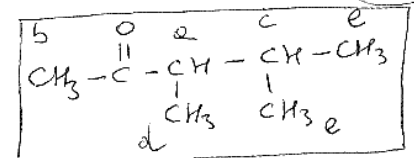 b O a c e
CH3 - C - CH - CH - CH3
CH3 CH3 e
d